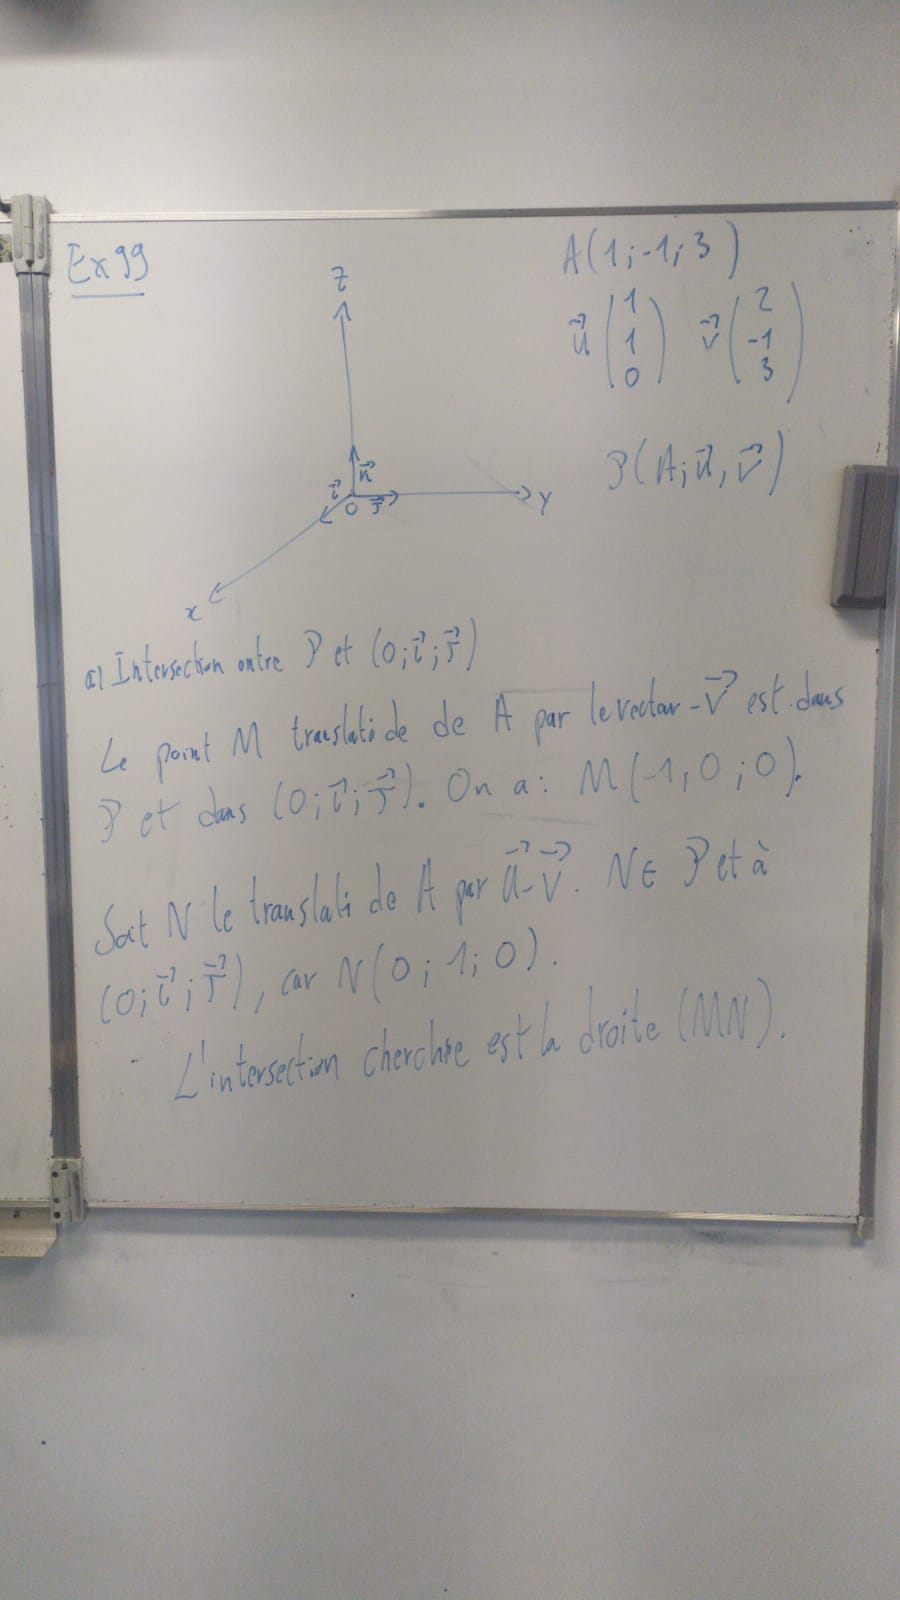 Ex 99
A(1;-1;3)
z
u⃗ (1 1 0) v⃗ (2 -1 3)
P(A;u⃗,v⃗)
k⃗
i⃗ O j⃗ y
x
a) Intersection entre P et (O;i⃗;j⃗)
Le point M translaté de de A par le vecteur -v⃗ est dans
P et dans (O;i⃗;j⃗). On a: M(-1,0;0).
Soit N le translaté de A par u⃗-v⃗. N∈ P et à
(O;i⃗;j⃗), car N(0;1;0).
L'intersection cherchée est la droite (MN).